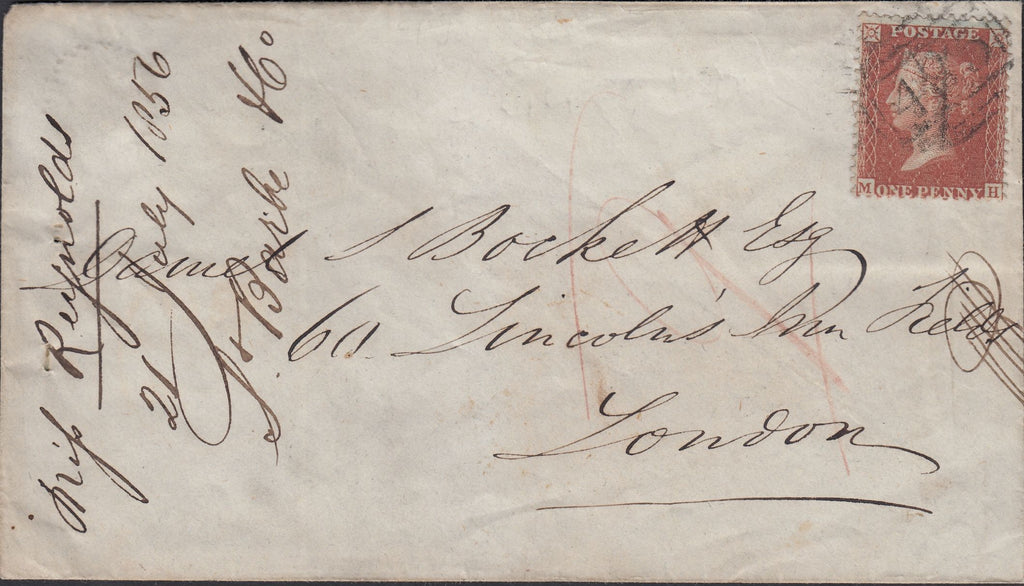 POSTAGE
ONE PENNY
M H
James S Bockett Esq
60 Lincoln's Inn Fields
London
Miss Reynolds
21 July 1856